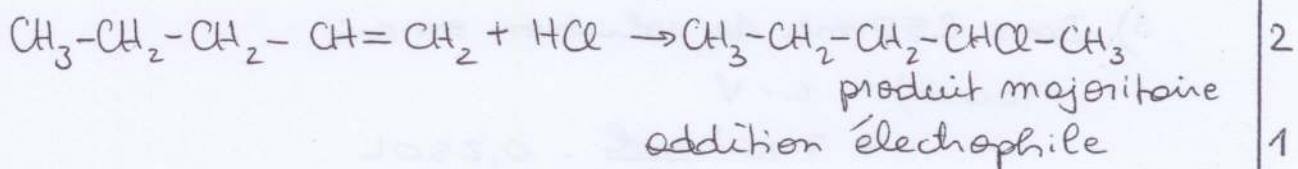 CH₃-CH₂-CH₂-CH=CH₂ + HCl → CH₃-CH₂-CH₂-CHCl-CH₃ 2
produit majoritaire
addition électrophile 1